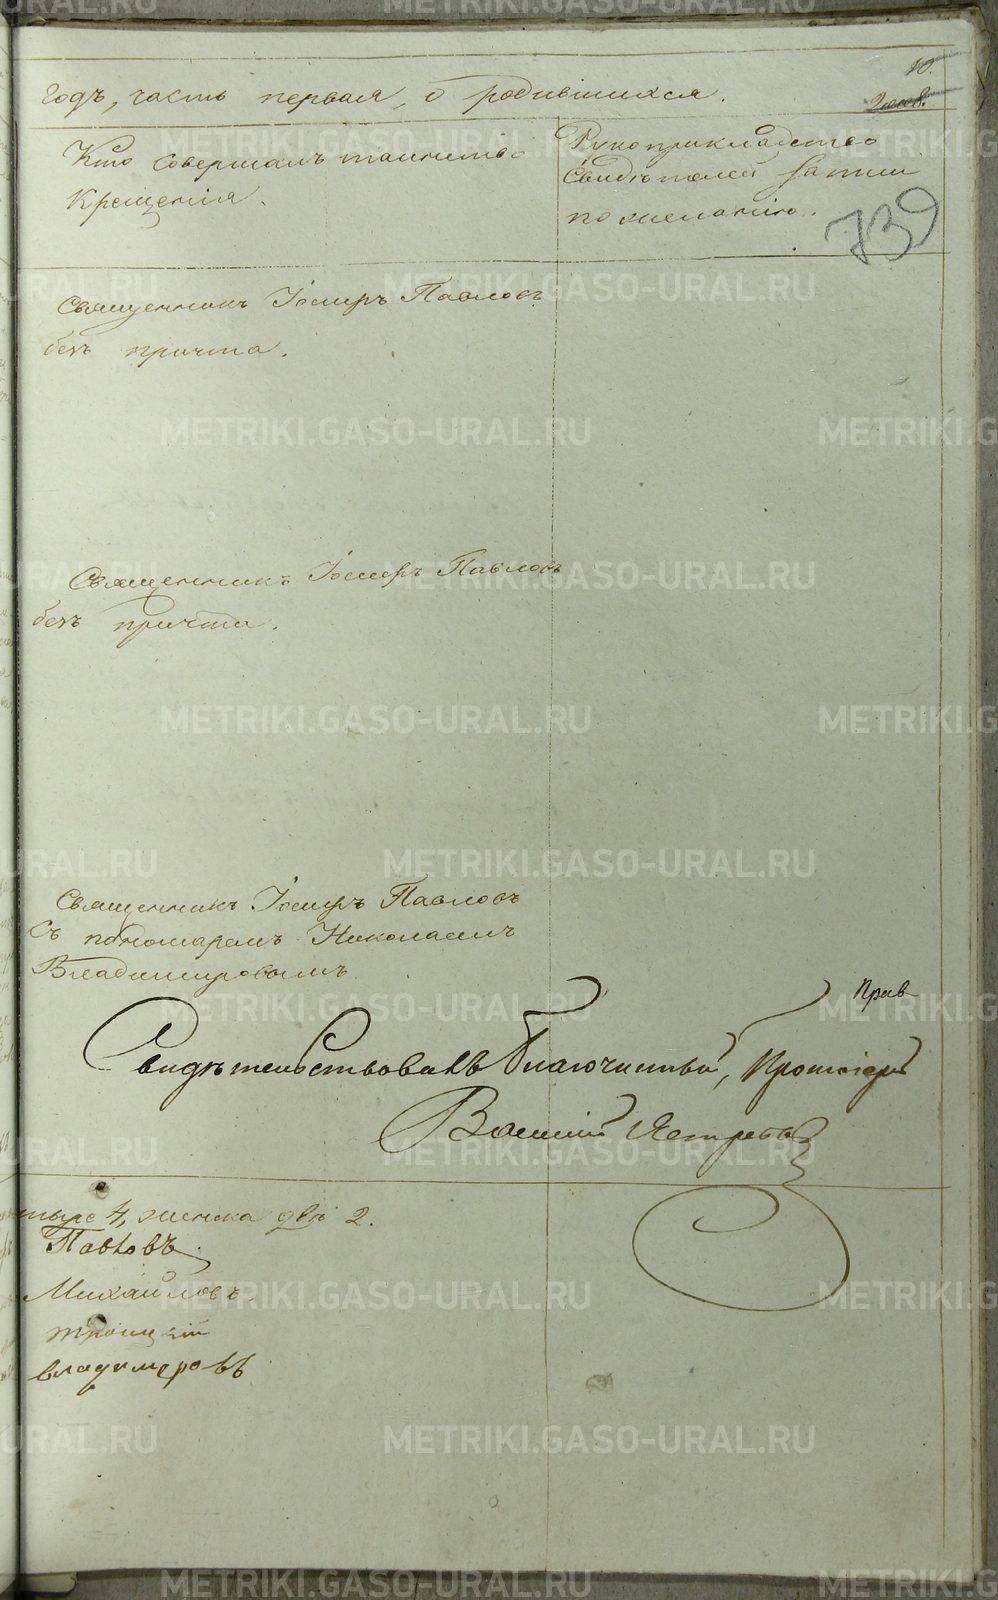 10.
годъ, часть первая, о родившихся.
Кто совершалъ таинство
Крещенія.
Рукоприкладство
Свидѣтелей записи
по желанію.
739
Священникъ Іосифъ Павловъ
безъ причта.
Священникъ Іосифъ Павловъ
безъ причта.
Священникъ Іосифъ Павловъ
Съ пономаремъ Николаемъ
Владимировымъ
Свидѣтельствовалъ Благочинный, Протоіерей
Василій Ястребов
тыре 4, женска двѣ 2.
Павловъ
Михайловъ
Троицкій
Владимеровъ
METRIKI.GASO-URAL.RU